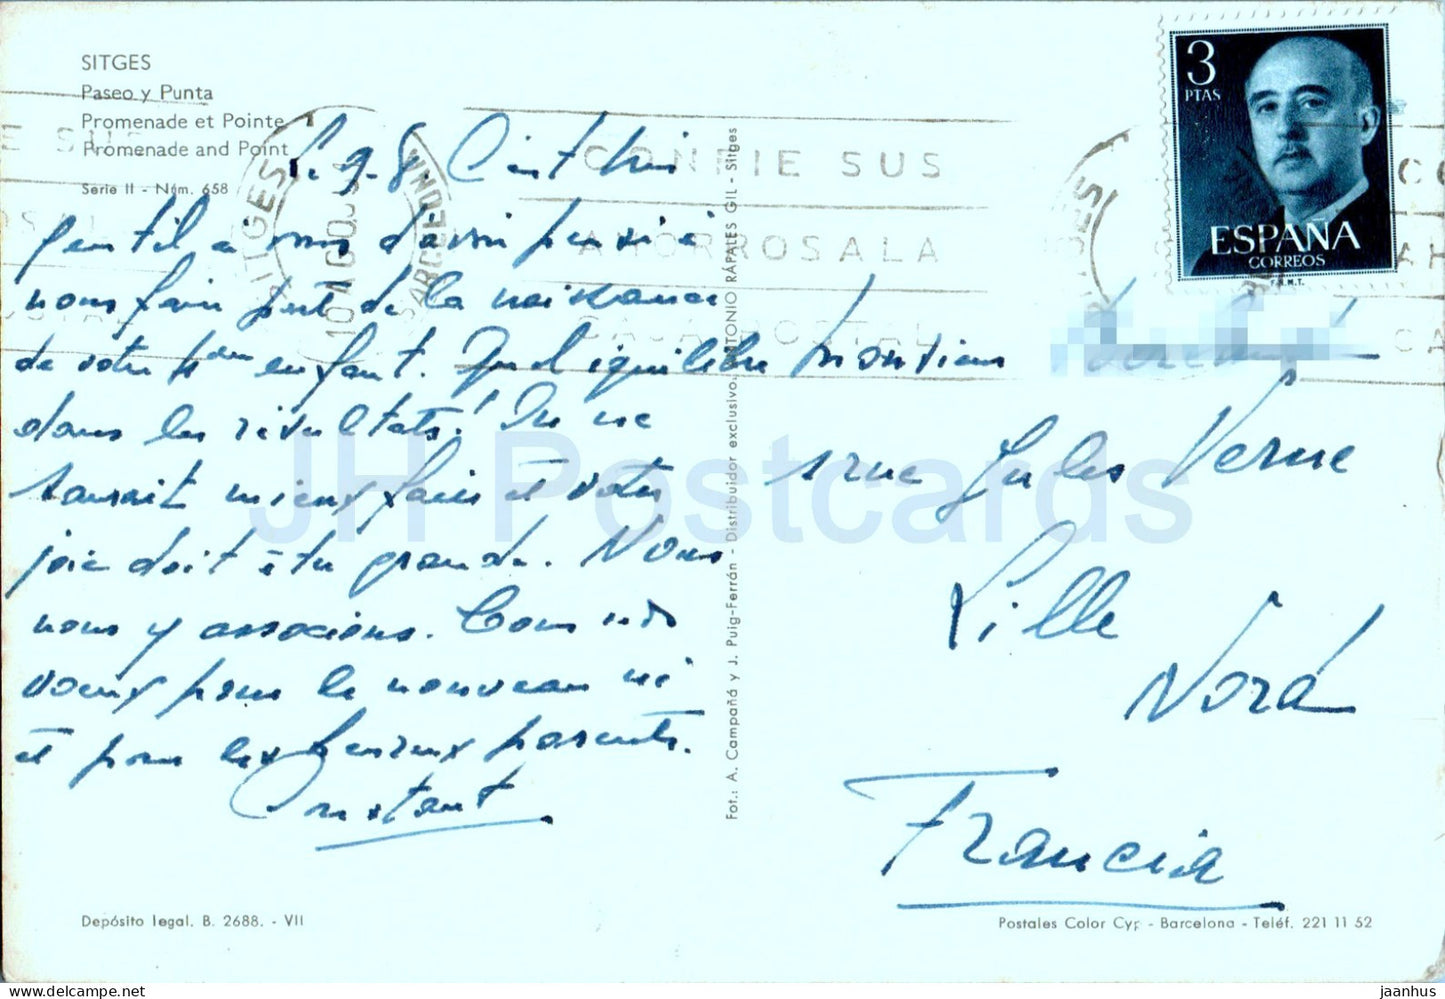 SITGES
Paseo y Punta
Promenade et Pointe
Promenade and Point
Serie II - Núm. 658
SITGES
BARCELONA
CONFIE SUS
AHORROS A LA
CAJA POSTAL
3
PTAS
ESPAÑA
CORREOS
F.N.M.T.
Le 9.8. C'est très
gentil à vous d'avoir pensé à
nous faire part de la naissance
de votre enfant. Quel équilibre
dans les résultats! On ne
saurait mieux faire et votre
joie doit être grande. Nous
nous y associons. Tous nos
voeux pour le nouveau né
et pour les heureux parents.
Constant
Monsieur
rue Jules Verne
Lille
Nord
Francia
Fot.: A. Campañá y J. Puig-Ferrán - Distribuidor exclusivo. ANTONIO RÁPALES GIL - Sitges
JH Postcards
Depósito legal. B. 2688. - VII
Postales Color Cyp - Barcelona - Teléf. 221 11 52
jaanhus